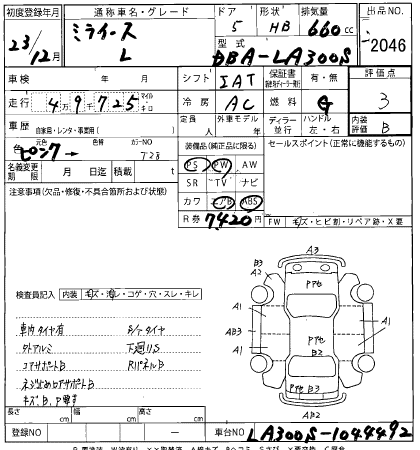 初度登録年月 通称車名・グレード ドア 形状 排気量 出品NO.
23/12月 ミライース L 5 HB 660cc 2046
型式 DBA-LA300S
車検 年 月 シフト IAT 保証書 有・無 評価点 3
走行 49725 マイル キロ 冷房 AC 燃料 G
車歴 自家用・レンタ・事業用( ) 定員 人 外車モデル 年 ディーラー 並行 ハンドル 左・右 内装 評価 B
色 元色 ピンク → 色替 カラーNO T28
装備品(純正品に限る) セールスポイント(正常に機能するもの)
PS PW AW
名義変更期限 月 日迄 積載 t SR TV ナビ
注意事項(欠品・修復・不具合箇所および状態) カワ エアB ABS
R券 7420円
FW キズ・ヒビ割・リペア跡・X要
検査員記入 内装 キズ・汚レ・コゲ・穴・スレ・キレ
車内タイヤ有
外アルミ 下廻りS
コアサポートB RパネルB
ネジ止めコアサポートB
キズ、B、P 要す
A3
B3
A2
Pアセ
A1
A1
Pアセ
AB3
A1
B2
Pアセ B3
AB2
長さ cm 幅 cm 高さ cm
登録NO 車台NO LA300S-1044492